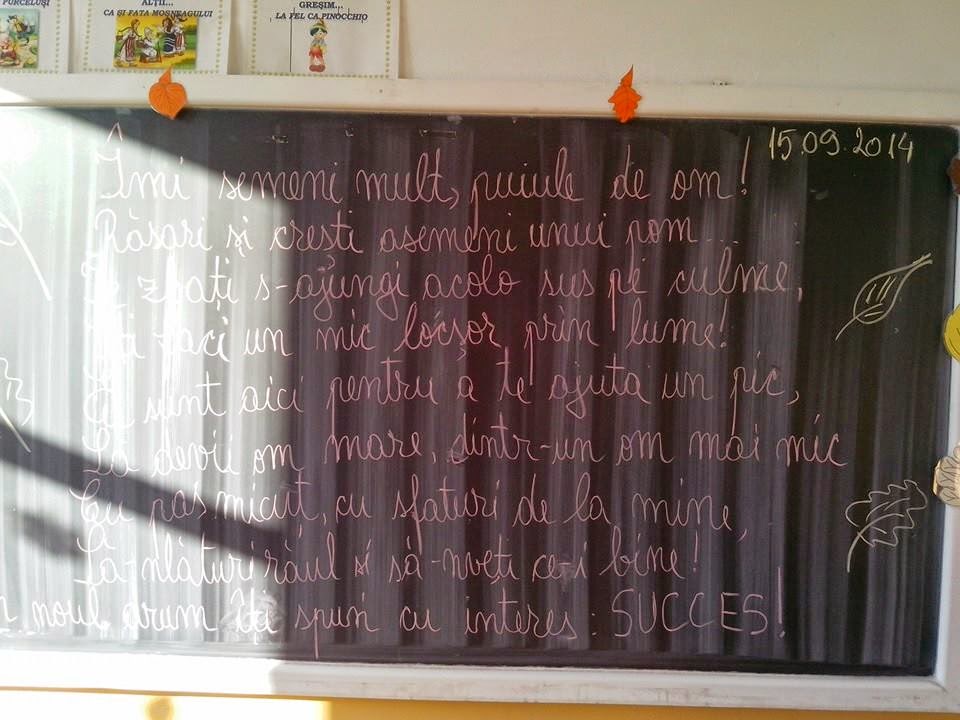 PURCELUȘI
ALȚII...
CA ȘI FATA MOȘNEAGULUI
GREȘIM...
LA FEL CA PINOCCHIO
15.09.2014
Îmi semeni mult, puiule de om!
Răsari și crești asemeni unui pom...
Te zbați s-ajungi acolo sus pe culme,
Îți faci un mic locșor prin lume!
Eu sunt aici pentru a te ajuta un pic,
Să devii om mare, dintr-un om mai mic
Cu pas micuț, cu sfaturi de la mine,
Să-nlături răul și să-nveți ce-i bine!
noul drum îți spun cu interes: SUCCES!